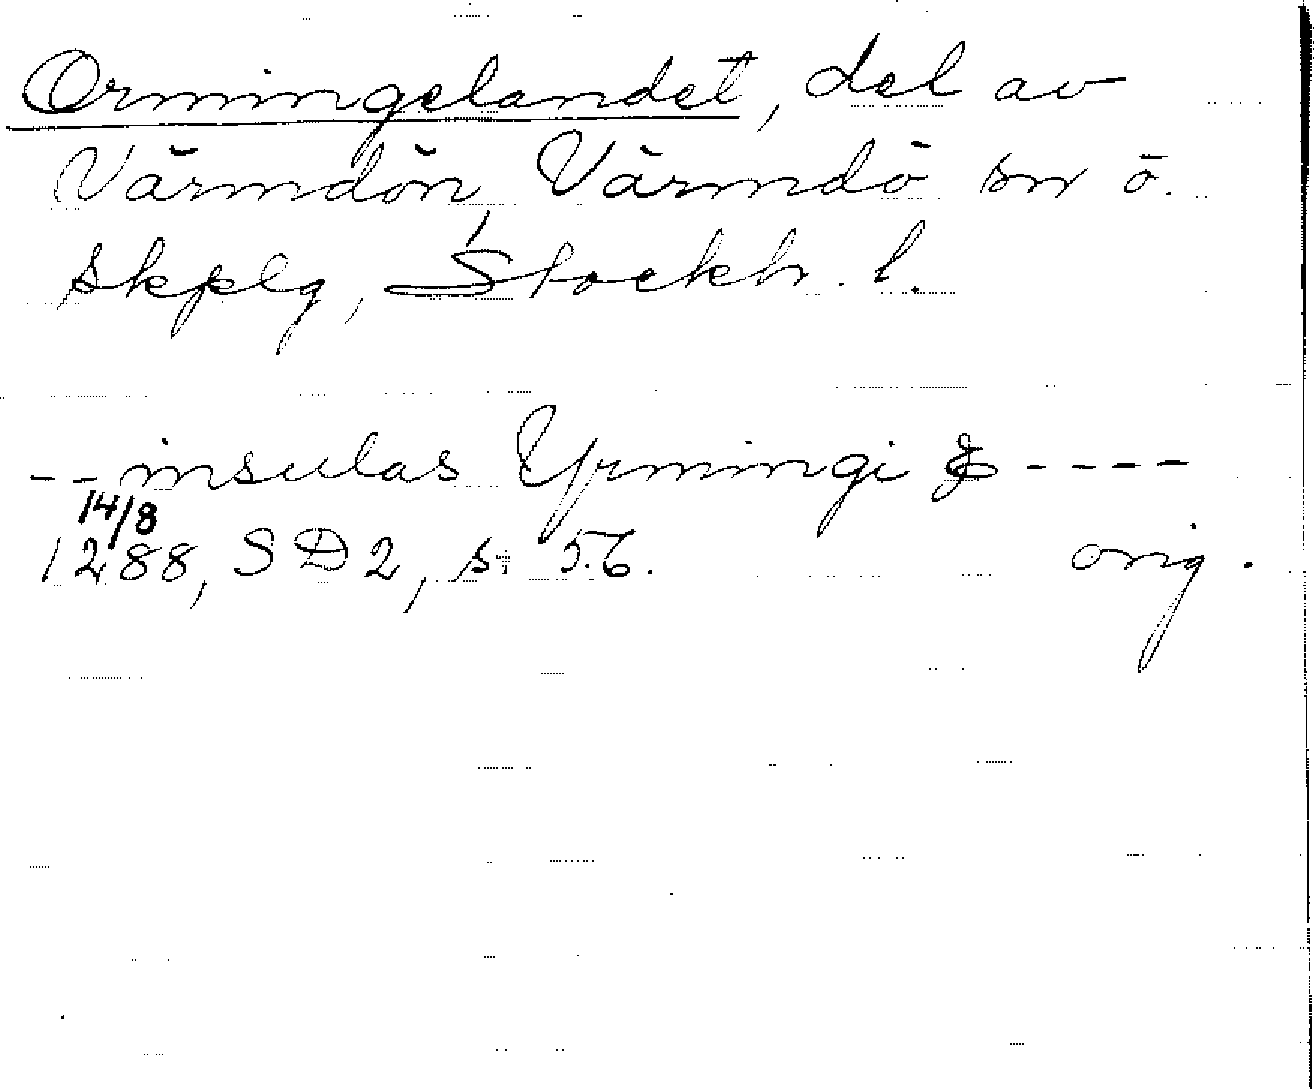 Ormingelandet, del av
Värmdön, Värmdö sn ö.
skplg, Stockh. l.
-- insulas Yrmingi & ----
14/8
1288, SD 2, s. 56. orig.